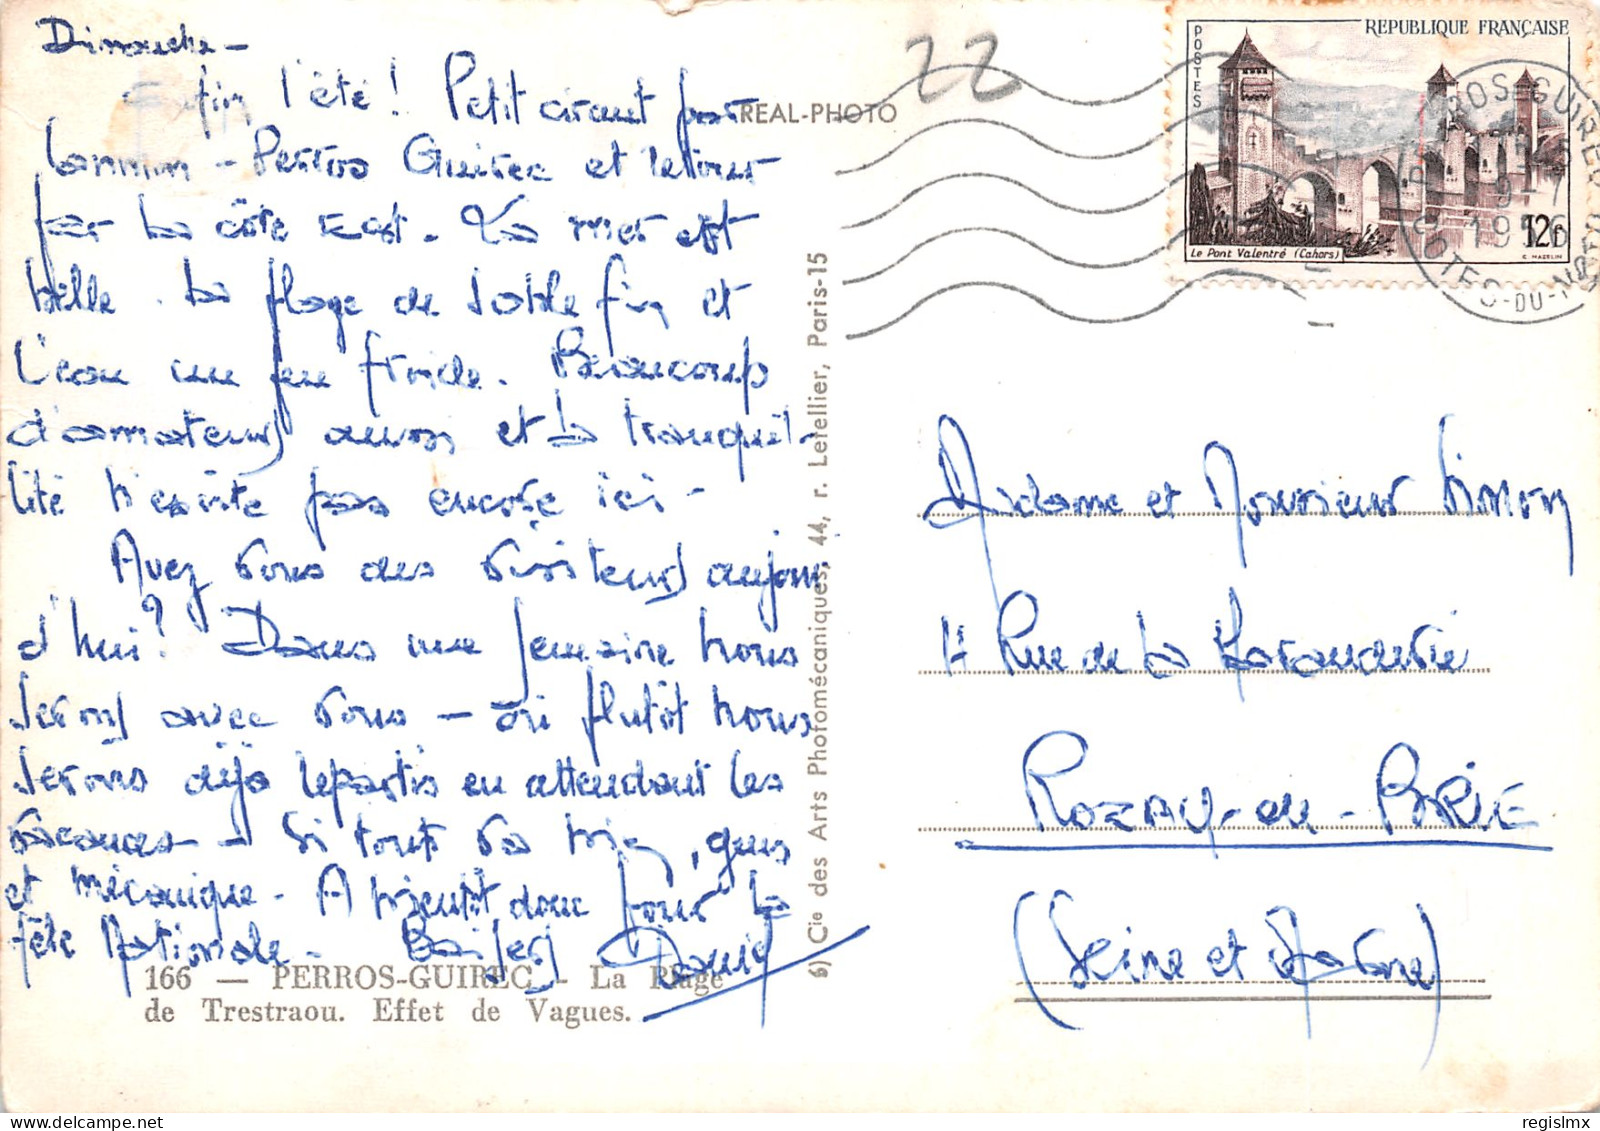 Dimanche -
Enfin l'été ! Petit circuit par
Lannion - Perros Guirec et retour
par la côte est. La mer est
belle. La plage de sable fin et
l'eau un peu froide. Beaucoup
d'amateurs aussi et la tranquil-
lité n'existe pas encore ici -
Avez vous des visiteurs aujour
d'hui ? Dans une semaine nous
serons avec vous - ou plutôt nous
serons déjà repartis en attendant les
vacances - Ici tout va bien, gens
et mécanique - A bientôt donc pour la
fête Nationale - Baisers
166 — PERROS-GUIREC - La Plage
de Trestraou. Effet de Vagues.
6) Cie des Arts Photomécaniques, 44, r. Letellier, Paris-15
REAL-PHOTO
22
REPUBLIQUE FRANÇAISE
POSTES
Le Pont Valentré (Cahors)
12f
C. MAZELIN
PERROS-GUIREC
9-7
1956
COTES-DU-NORD
Madame et Monsieur Simon
Rue de la
ROZAY-en-BRIE
(Seine et Marne)
regislmx